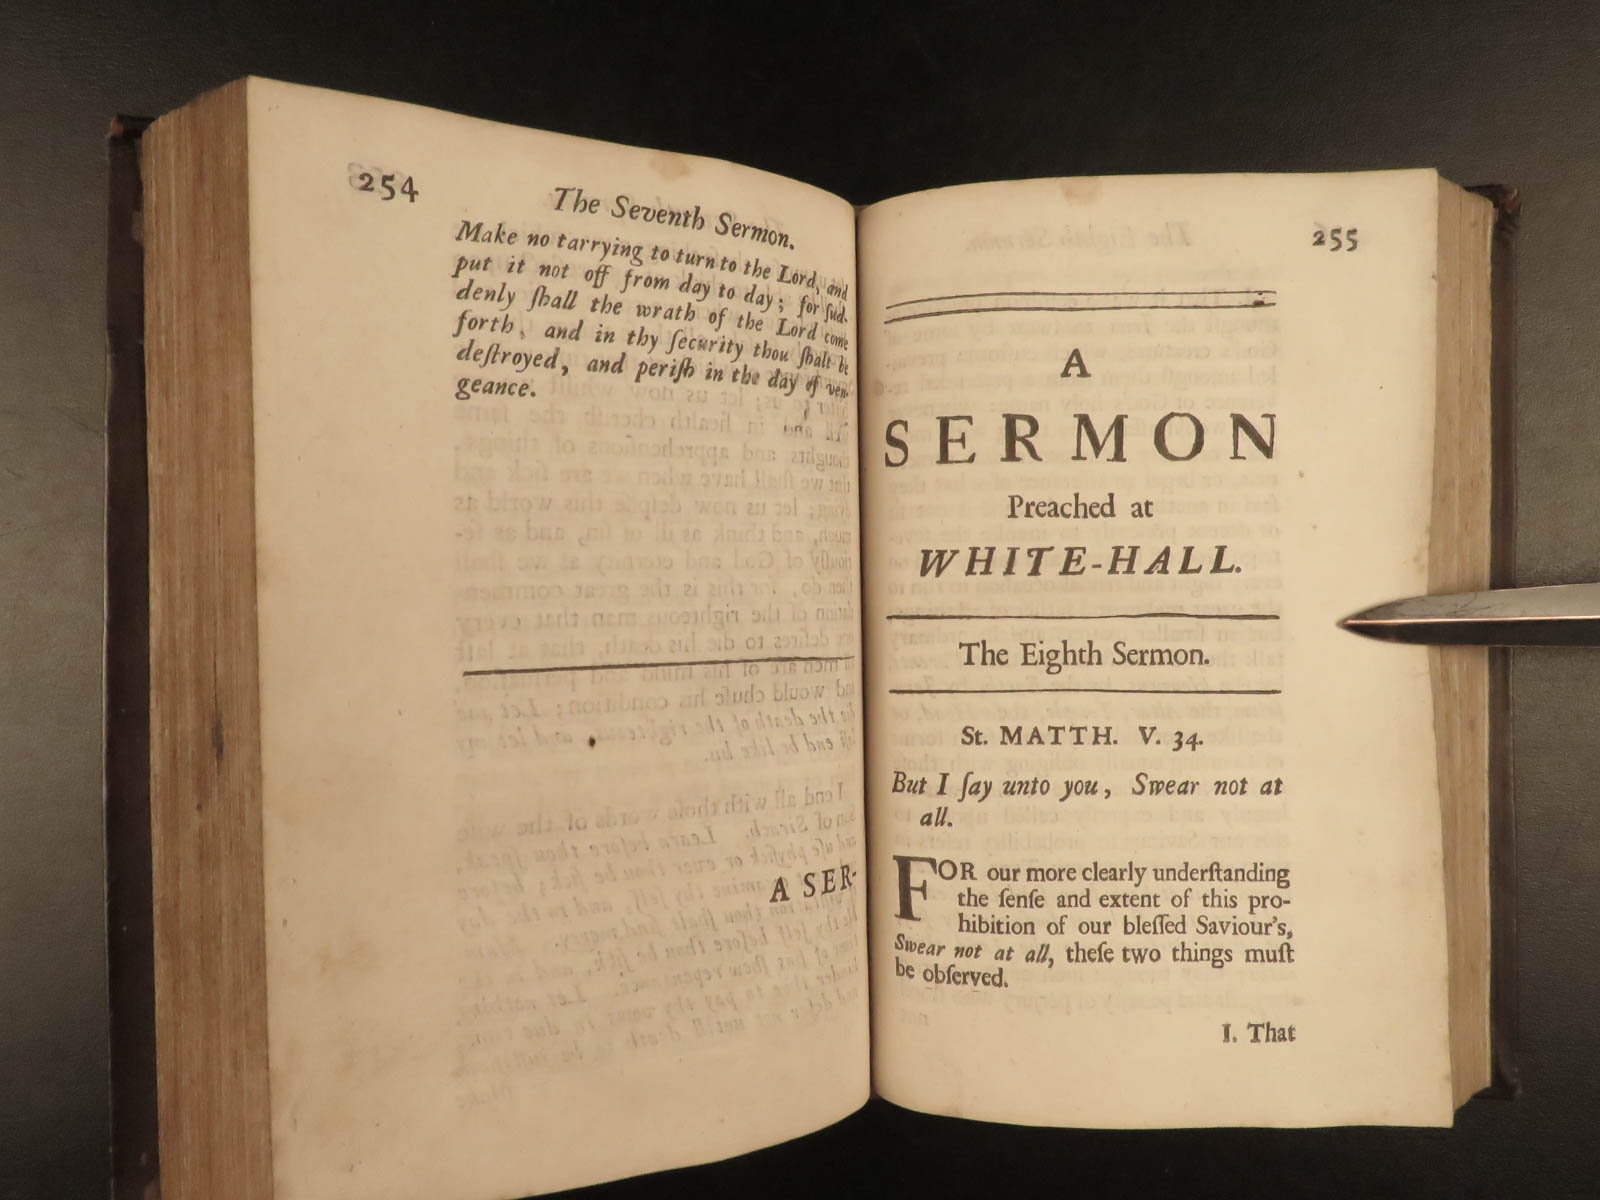 254
The Seventh Sermon.
Make no tarrying to turn to the Lord, and
put it not off from day to day; for ſud-
denly ſhall the wrath of the Lord come
forth, and in thy ſecurity thou ſhalt be
deſtroyed, and periſh in the day of ven-
geance.
A SER-
255
A
SERMON
Preached at
WHITE-HALL.
The Eighth Sermon.
St. MATTH. V. 34.
But I ſay unto you, Swear not at
all.
FOR our more clearly underſtanding
the ſenſe and extent of this pro-
hibition of our bleſſed Saviour's,
Swear not at all, theſe two things muſt
be obſerved.
I. That